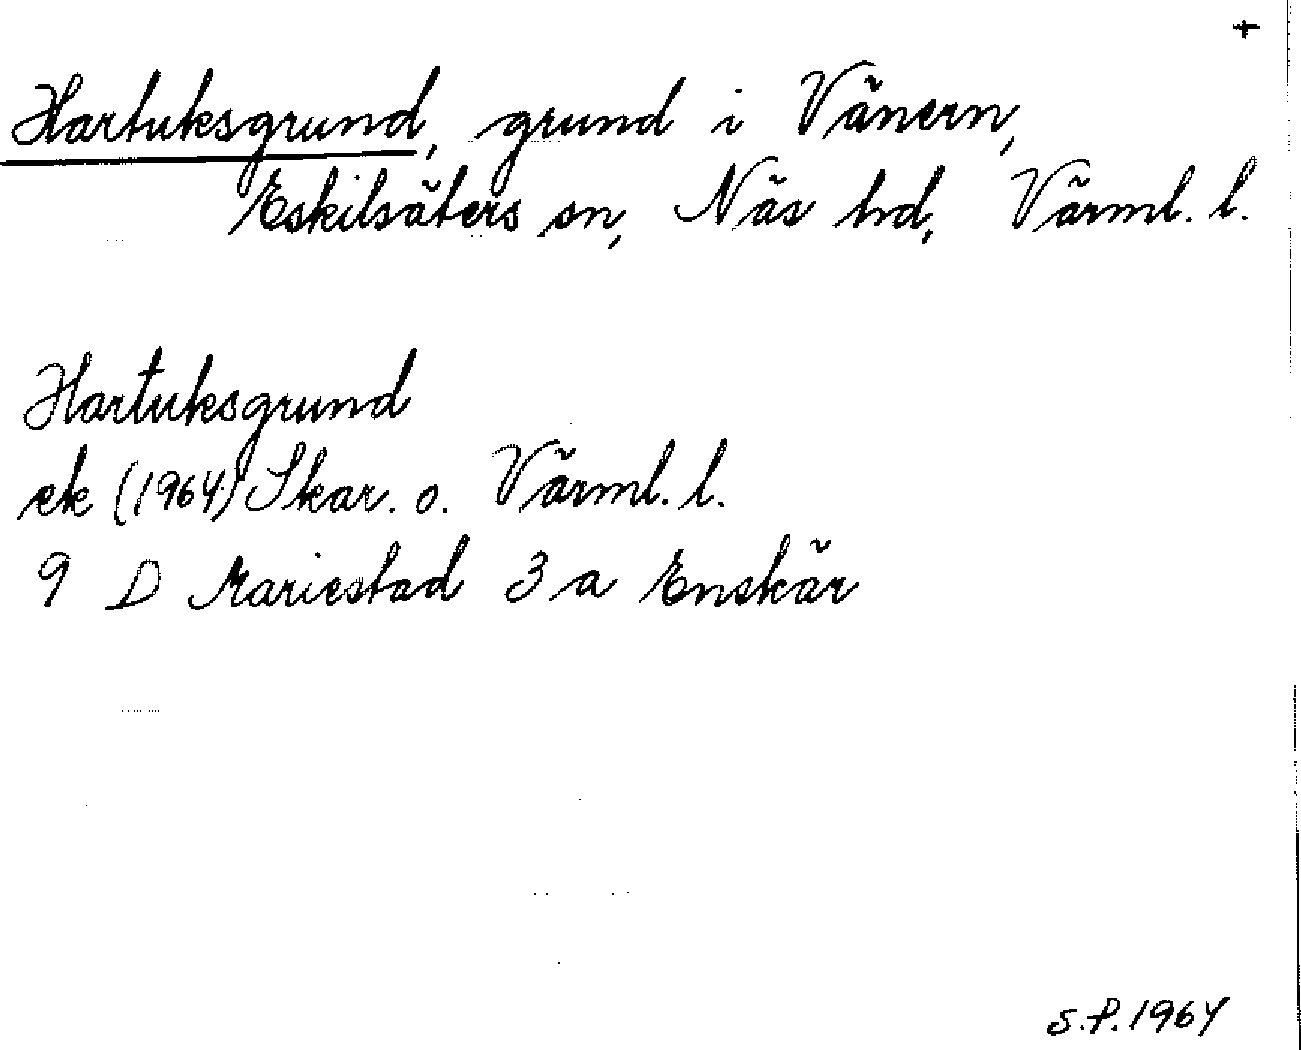 Hartuksgrund, grund i Vänern,
Eskilsäters sn, Näs hd, Värml. l.
Hartuksgrund
ek (1964) Skar. o. Värml. l.
9 D Mariestad 3 a Enskär
S.P. 1964